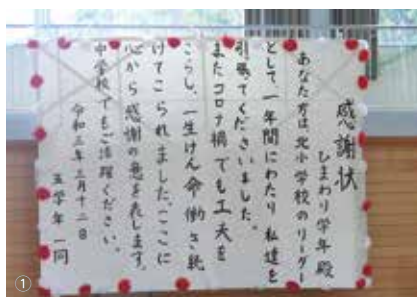 感謝状
ひまわり学年殿
あなた方は北小学校のリーダー
として一年間にわたり私達を
引張てくださいました。
またコロナ禍でも工夫を
こらし、一生けん命働き続
けてこられました。ここに
心から感謝の意を表します。
中学校でもご活躍ください。
令和三年三月十二日
五学年一同
①